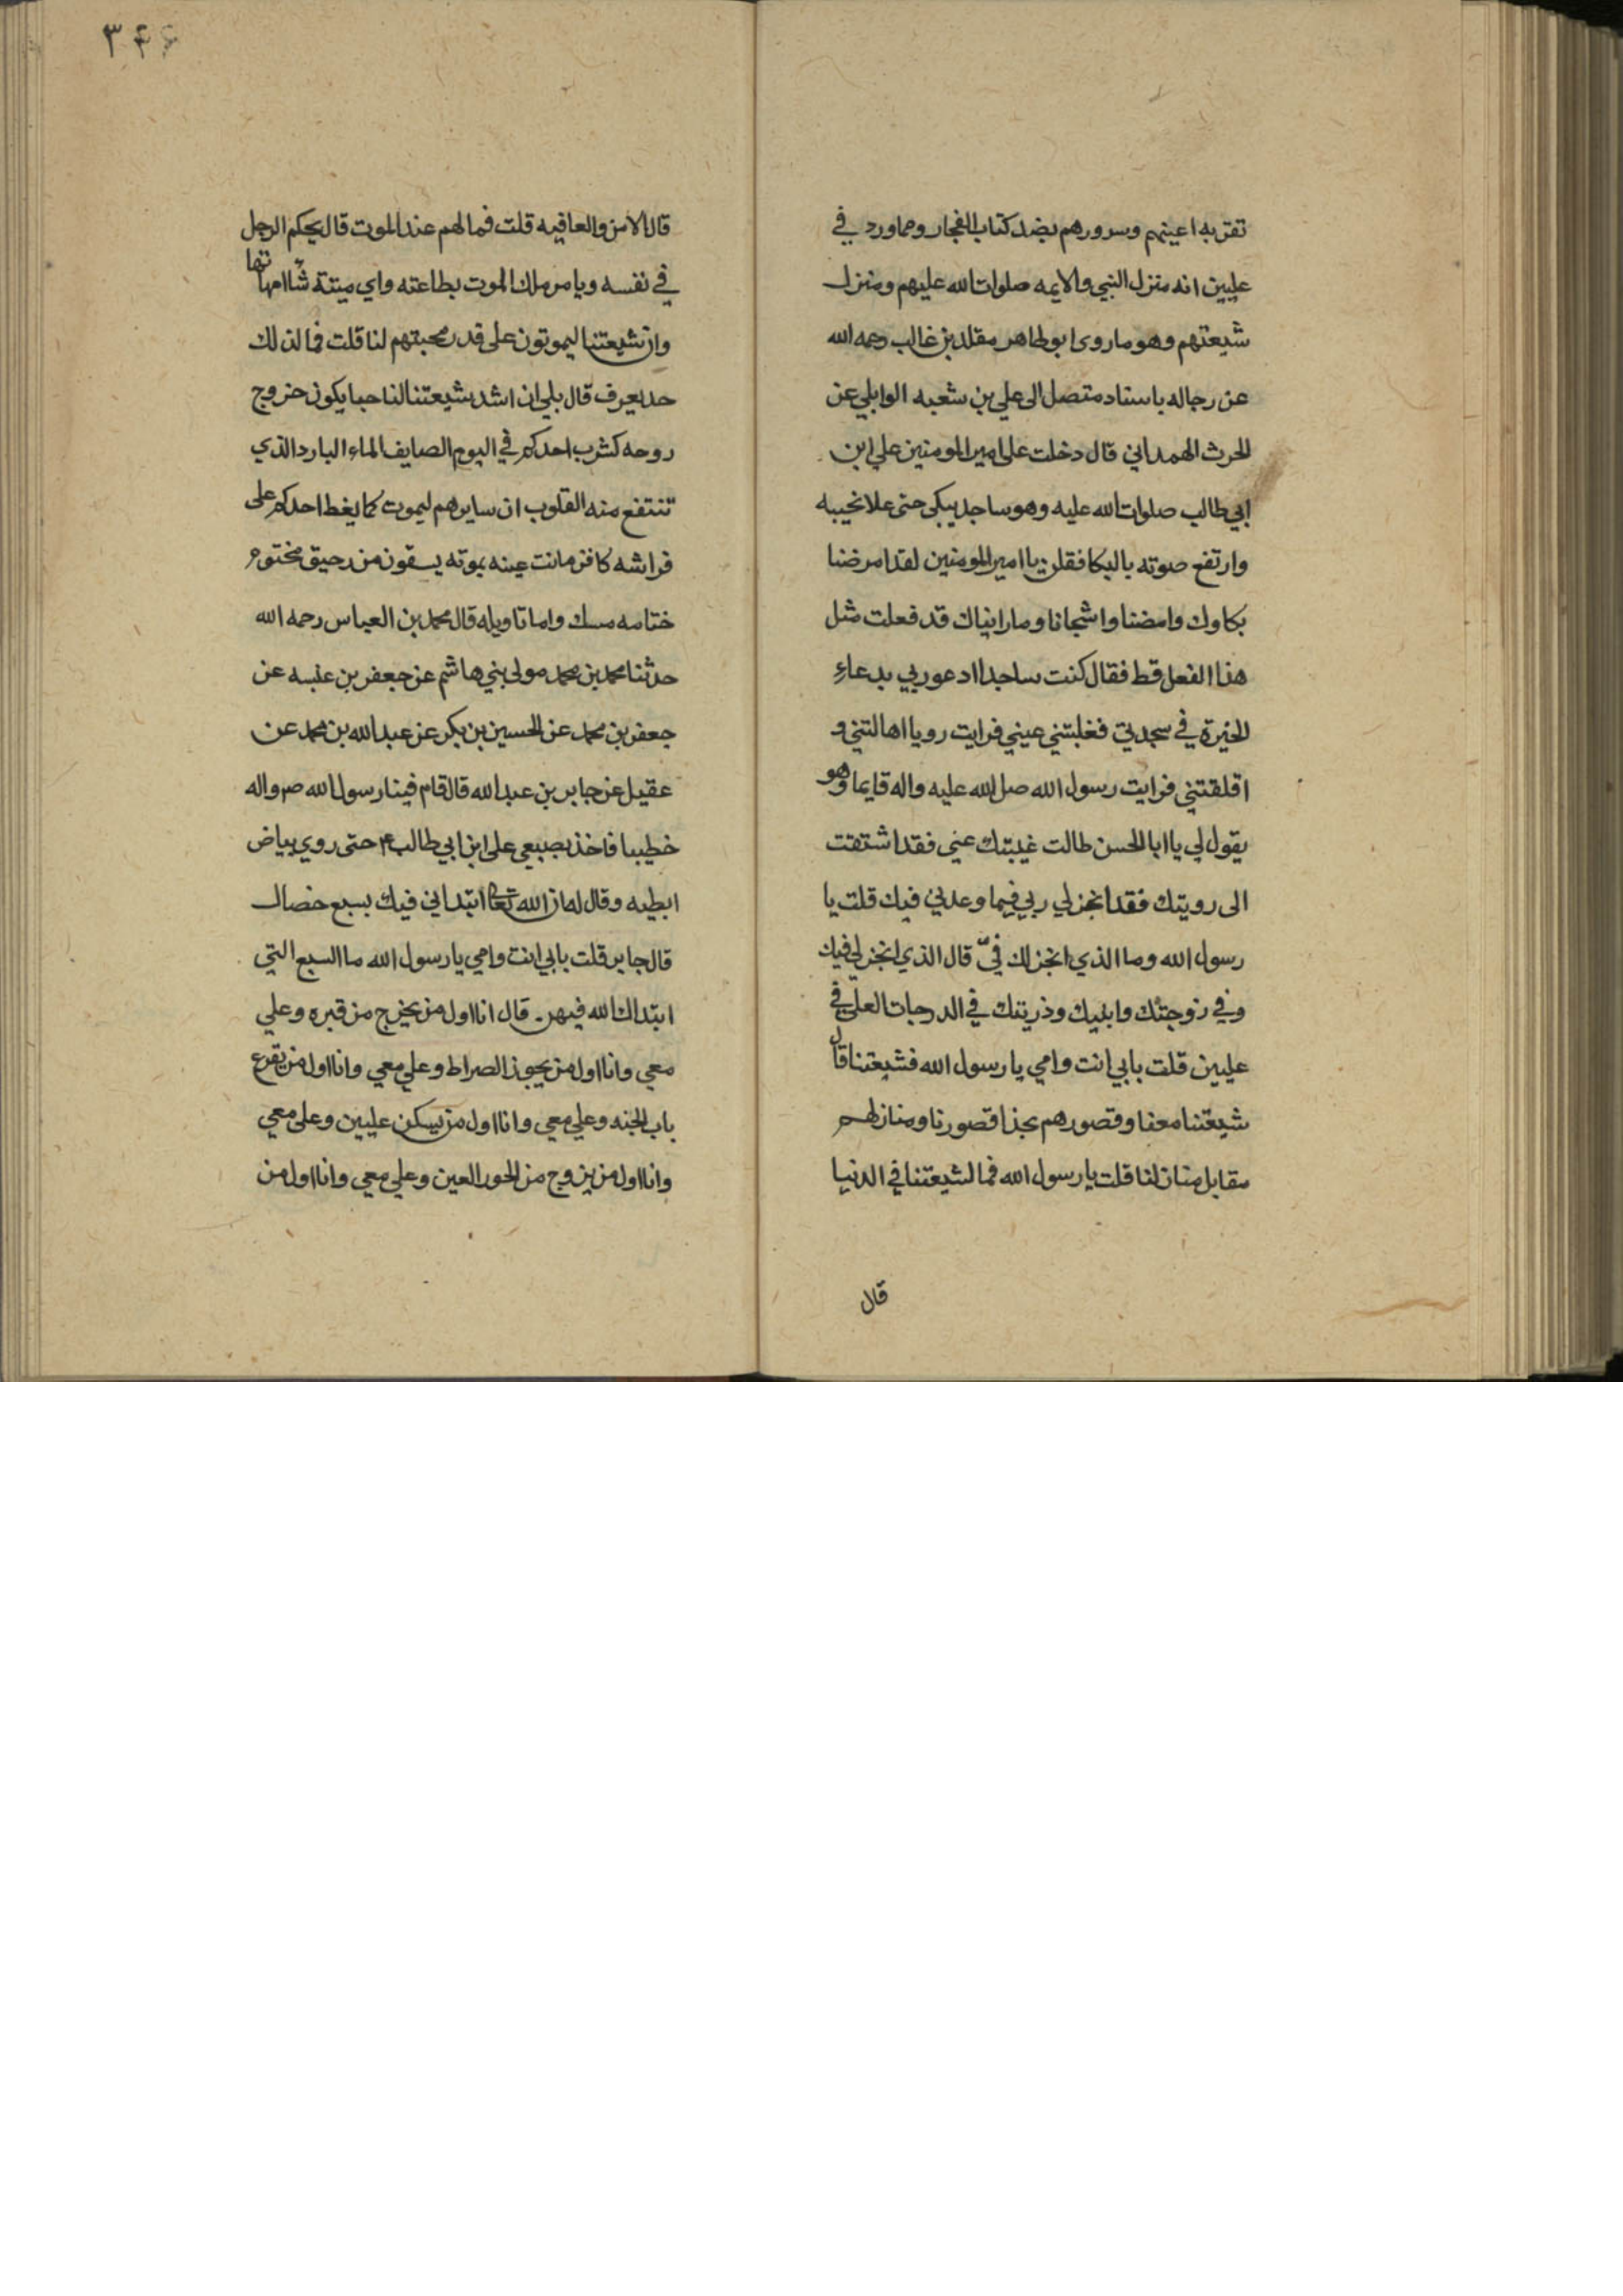 تقر به اعينهم وسرورهم بضد كتاب الفجار ومما ورد في
عليين انه منزل النبي والايمه صلوات الله عليهم ومنزل
شيعتهم وهو ما روى ابو طاهر مقلد بن غالب رحمه الله
عن رجاله باسناد متصل الى علي بن شعبه الوابلي عن
الحرث الهمداني قال دخلت على امير المومنين علي ابن
ابي طالب صلوات الله عليه وهو ساجد يبكى حتى علا نحيبه
وارتفع صوته بالبكا فقلن يا امير المومنين لقد امرضنا
بكاوك وامضنا واشجانا وما رايناك قد فعلت مثل
هذا الفعل قط فقال كنت ساجدا ادعو ربي بدعاء
الخيرة في سجدتي فغلبتني عيني فرايت رويا اهالتني و
اقلقتني فرايت رسول الله صل الله عليه واله قايما وهو
يقول لي يا ابا الحسن طالت غيبتك عني فقد اشتقت
الى رويتك فقد انجز لي ربي فيما وعدني فيك قلت يا
رسول الله وما الذي انجز لك فيّ قال الذي انجز لي فيك
وفي زوجتك وابنيك وذريتك في الدرجات العلى في
عليين قلت بابي انت وامي يا رسول الله فشيعتنا قال
شيعتنا معنا وقصورهم بحذا قصورنا ومنازلهم
مقابل منازلنا قلت يا رسول الله فما لشيعتنا في الدنيا
قال
٣٤٤
قال الامن والعافيه قلت فما لهم عند الموت قال يحكم الرجل
في نفسه ويامر ملك الموت بطاعته واي ميتة شا اماتها
وان شيعتنا ليموتون على قدر محبتهم لنا قلت فما لذلك
حد يعرف قال بلى ان اشد شيعتنا لنا حبا يكون خروج
روحه كشرب احدكم في اليوم الصايف الماء البارد الذي
تنتفع منه القلوب ان سايرهم ليموت كما يغط احدكم على
فراشه كاقر مانت عينه بموته يسقون من رحيق مختوم
ختامه مسك واما تاويله قال محمد بن العباس رحمه الله
حدثنا محمد بن محمد مولى بني هاشم عن جعفر بن عنبسه عن
جعفر بن محمد عن الحسين بن بكر عن عبد الله بن محمد عن
عقيل عن جابر بن عبد الله قال قام فينا رسول الله صم واله
خطيبا فاخذ بضبعي على ابن ابي طالب ع حتى روي بياض
ابطيه وقال له ان الله تعا ابتداني فيك بسبع خصال
قال جابر قلت بابي انت وامي يا رسول الله ما السبع التي
ابتداك الله فيهن قال انا اول من يخرج من قبره وعلي
معي وانا اول من يجوز الصراط وعلي معي وانا اول من يقرع
باب الجنه وعلي معي وانا اول من يسكن عليين وعلى معي
وانا اول من يزوج من الحور العين وعلي معي وانا اول من